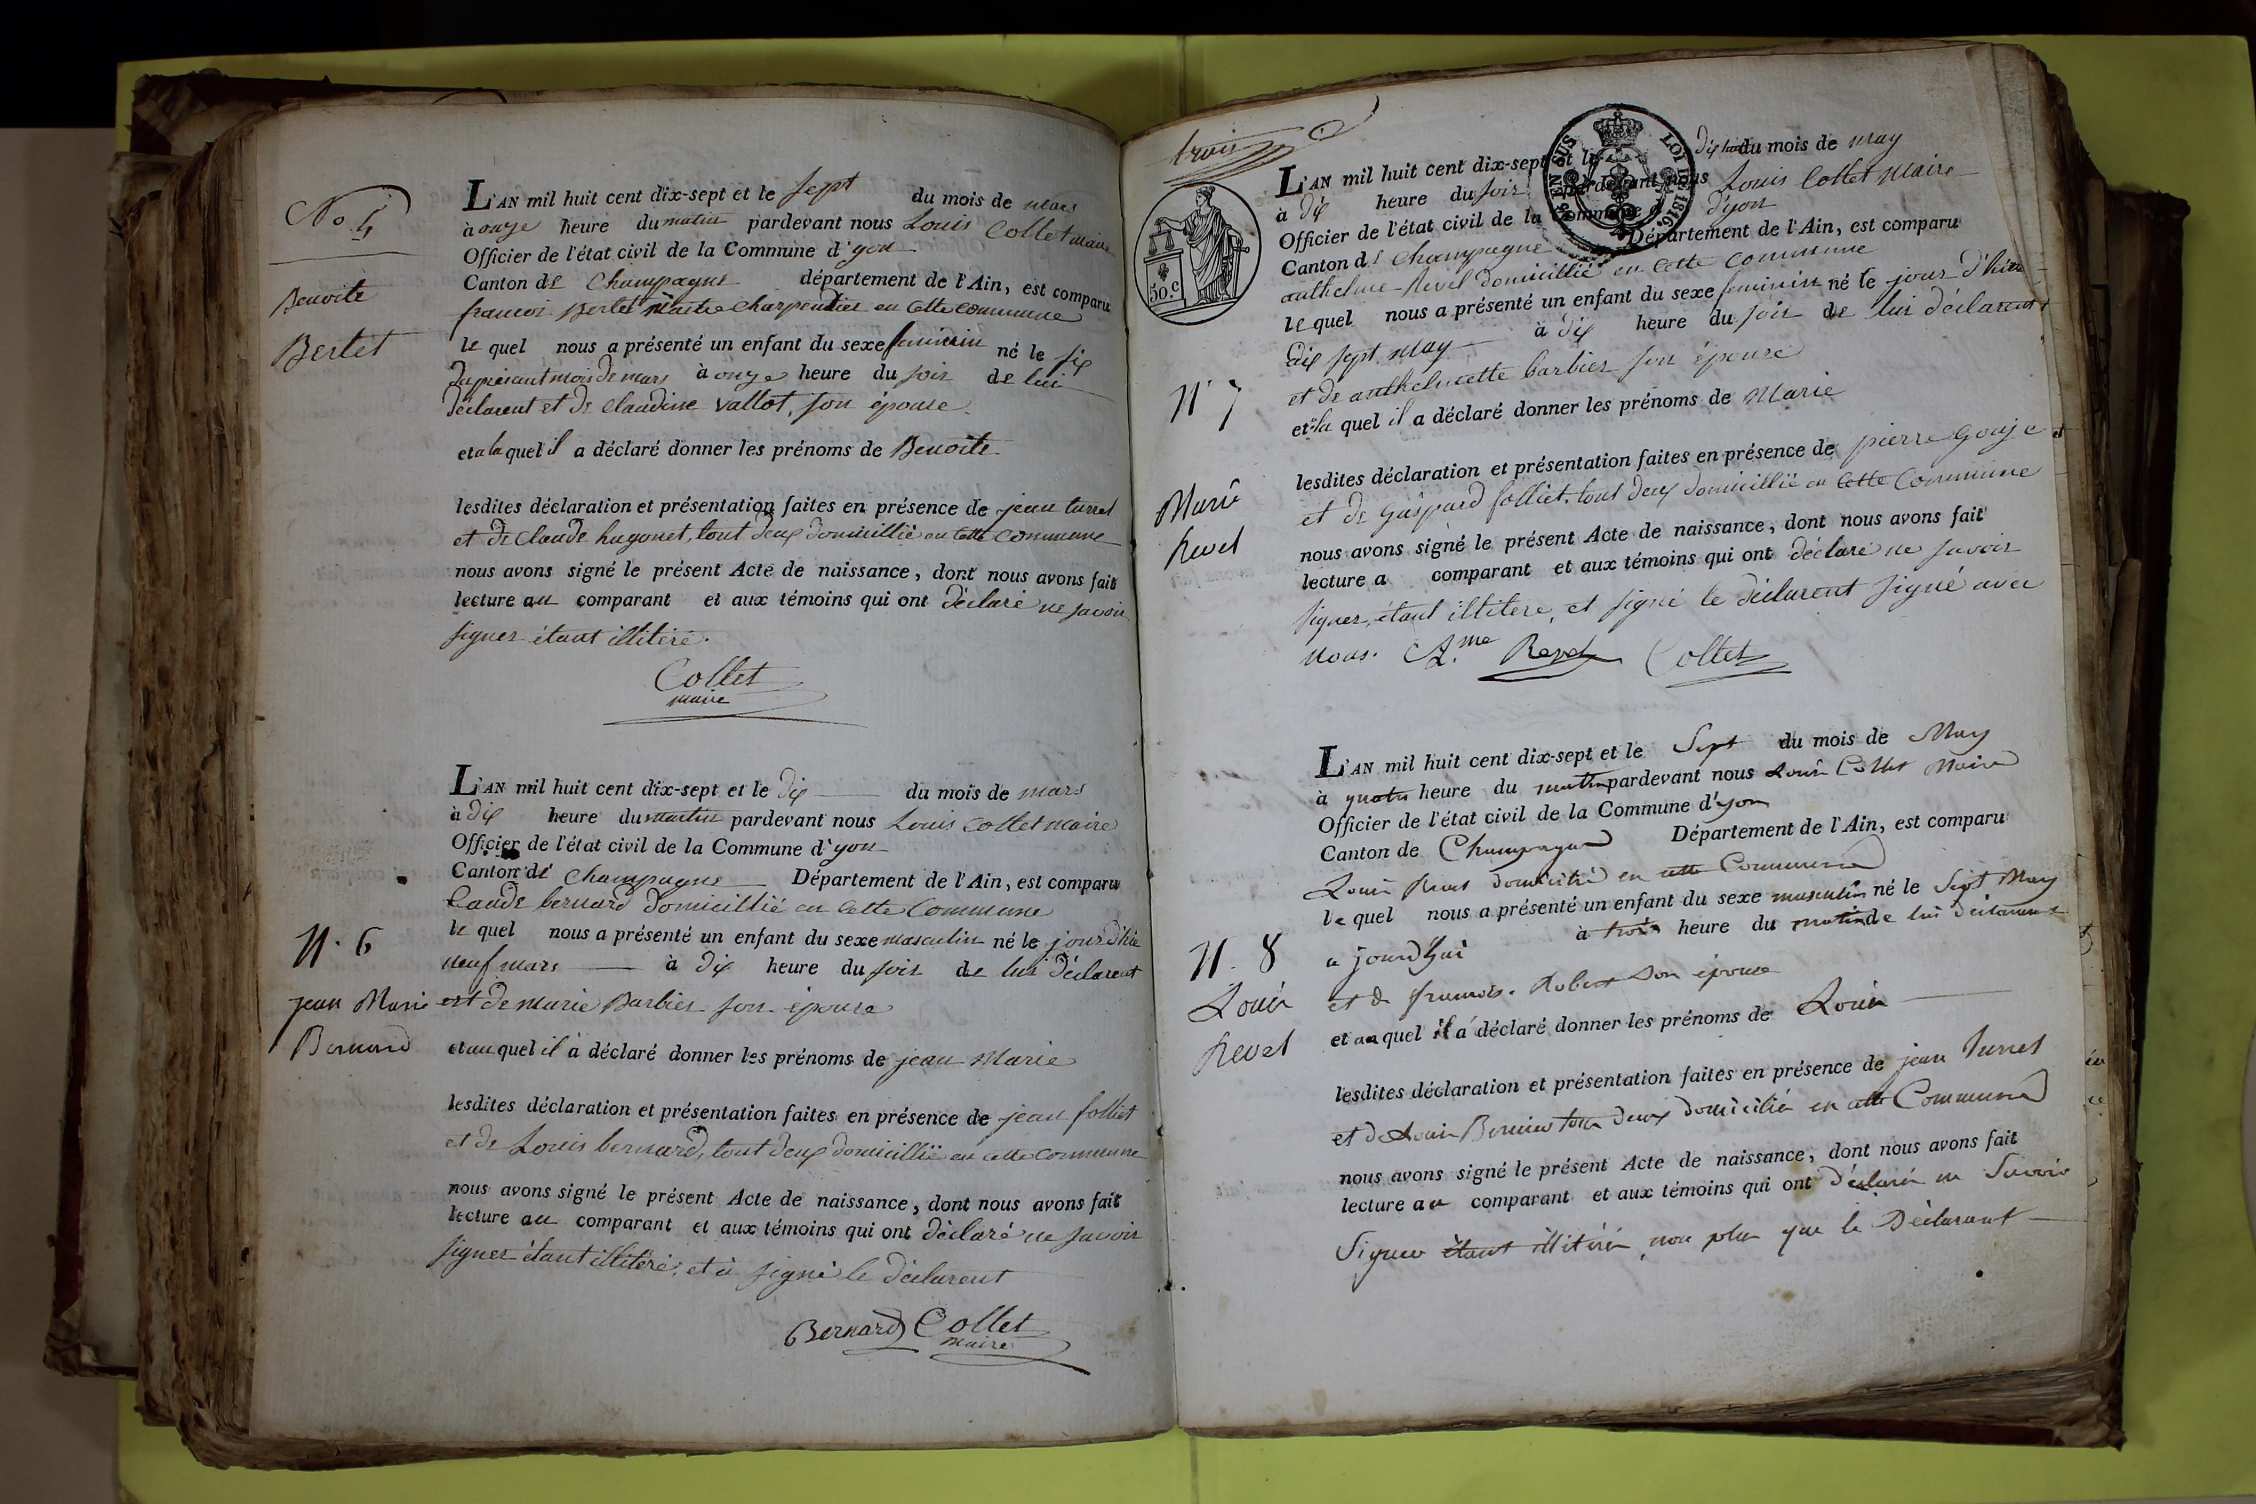 No 5
Benoite
Bertet
L'AN mil huit cent dix-sept et le sept du mois de mars
à onze heure du matin pardevant nous Louis Collet maire
Officier de l'état civil de la Commune d'yon
Canton de Champagne département de l'Ain, est comparu
francois Bertet maitre charpentier en cette commune
le quel nous a présenté un enfant du sexe feminin né le six
du présant mois de mars à onze heure du soir de lui
déclarent et de claudine vallot, son épouse
et a la quel il a déclaré donner les prénoms de Benoite
lesdites déclaration et présentation faites en présence de jean turrel
et de claude hugonet, tout deux domicillié en cette commune
nous avons signé le présent Acte de naissance, dont nous avons fait
lecture au comparant et aux témoins qui ont déclaré ne savoir
signer étant illitéré.
Collet
maire
L'AN mil huit cent dix-sept et le dix du mois de mars
à dix heure du matin pardevant nous Louis Collet maire
Officier de l'état civil de la Commune d'yon
Canton de Champagne Département de l'Ain, est comparu
Claude bernard domicillié en cette commune
le quel nous a présenté un enfant du sexe masculin né le jour d'hier
neuf mars à dix heure du soir de lui déclarent
et de marie Barbier son épouse
N. 6
jean Marie
Bernard
et au quel il a déclaré donner les prénoms de jean Marie
lesdites déclaration et présentation faites en présence de jean folliet
et de Louis bernard, tout deux domicillié en cette commune
nous avons signé le présent Acte de naissance, dont nous avons fait
lecture au comparant et aux témoins qui ont déclaré ne savoir
signer étant illitéré, et à signé le déclarent
Bernard Collet
maire
trois
TIMB EN SUS LOI DE 1816.
50.c
L'AN mil huit cent dix-sept et le dix huit du mois de may
à dix heure du soir pardevant nous Louis Collet maire
Officier de l'état civil de la Commune d'yon
Canton de Champagne Département de l'Ain, est comparu
anthelme Revel domicillié en cette commune
le quel nous a présenté un enfant du sexe feminin né le jour d'hier
dix sept may à dix heure du soir de lui déclarent
et de anthelmette barbier son épouse
N 7
Marie
Revel
et a la quel il a déclaré donner les prénoms de Marie
lesdites déclaration et présentation faites en présence de pierre gouje et
et de gaspard folliet, tout deux domicillié en cette commune
nous avons signé le présent Acte de naissance, dont nous avons fait
lecture a comparant et aux témoins qui ont déclaré ne savoir
signer, étant illitere, et signé le déclarent signé avec
nous. A.me Revel Collet
L'AN mil huit cent dix-sept et le Sept du mois de May
à quatre heure du matin pardevant nous Louis Collet Maire
Officier de l'état civil de la Commune d'yon
Canton de Champagne Département de l'Ain, est comparu
Louis Revel domicilié en cette Commune
le quel nous a présenté un enfant du sexe masculin né le Sept May
a jourd'hui à trois heure du matin de lui déclarant
et de francoise Robert son épouse
N. 8
Louis
Revel
et au quel il a déclaré donner les prénoms de Louis
lesdites déclaration et présentation faites en présence de jean turrel
et de Louis tous deux domicilié en cette Commune
nous avons signé le présent Acte de naissance, dont nous avons fait
lecture au comparant et aux témoins qui ont déclaré ne Savoir
Signer étant illitéré, non plus que le Déclarant